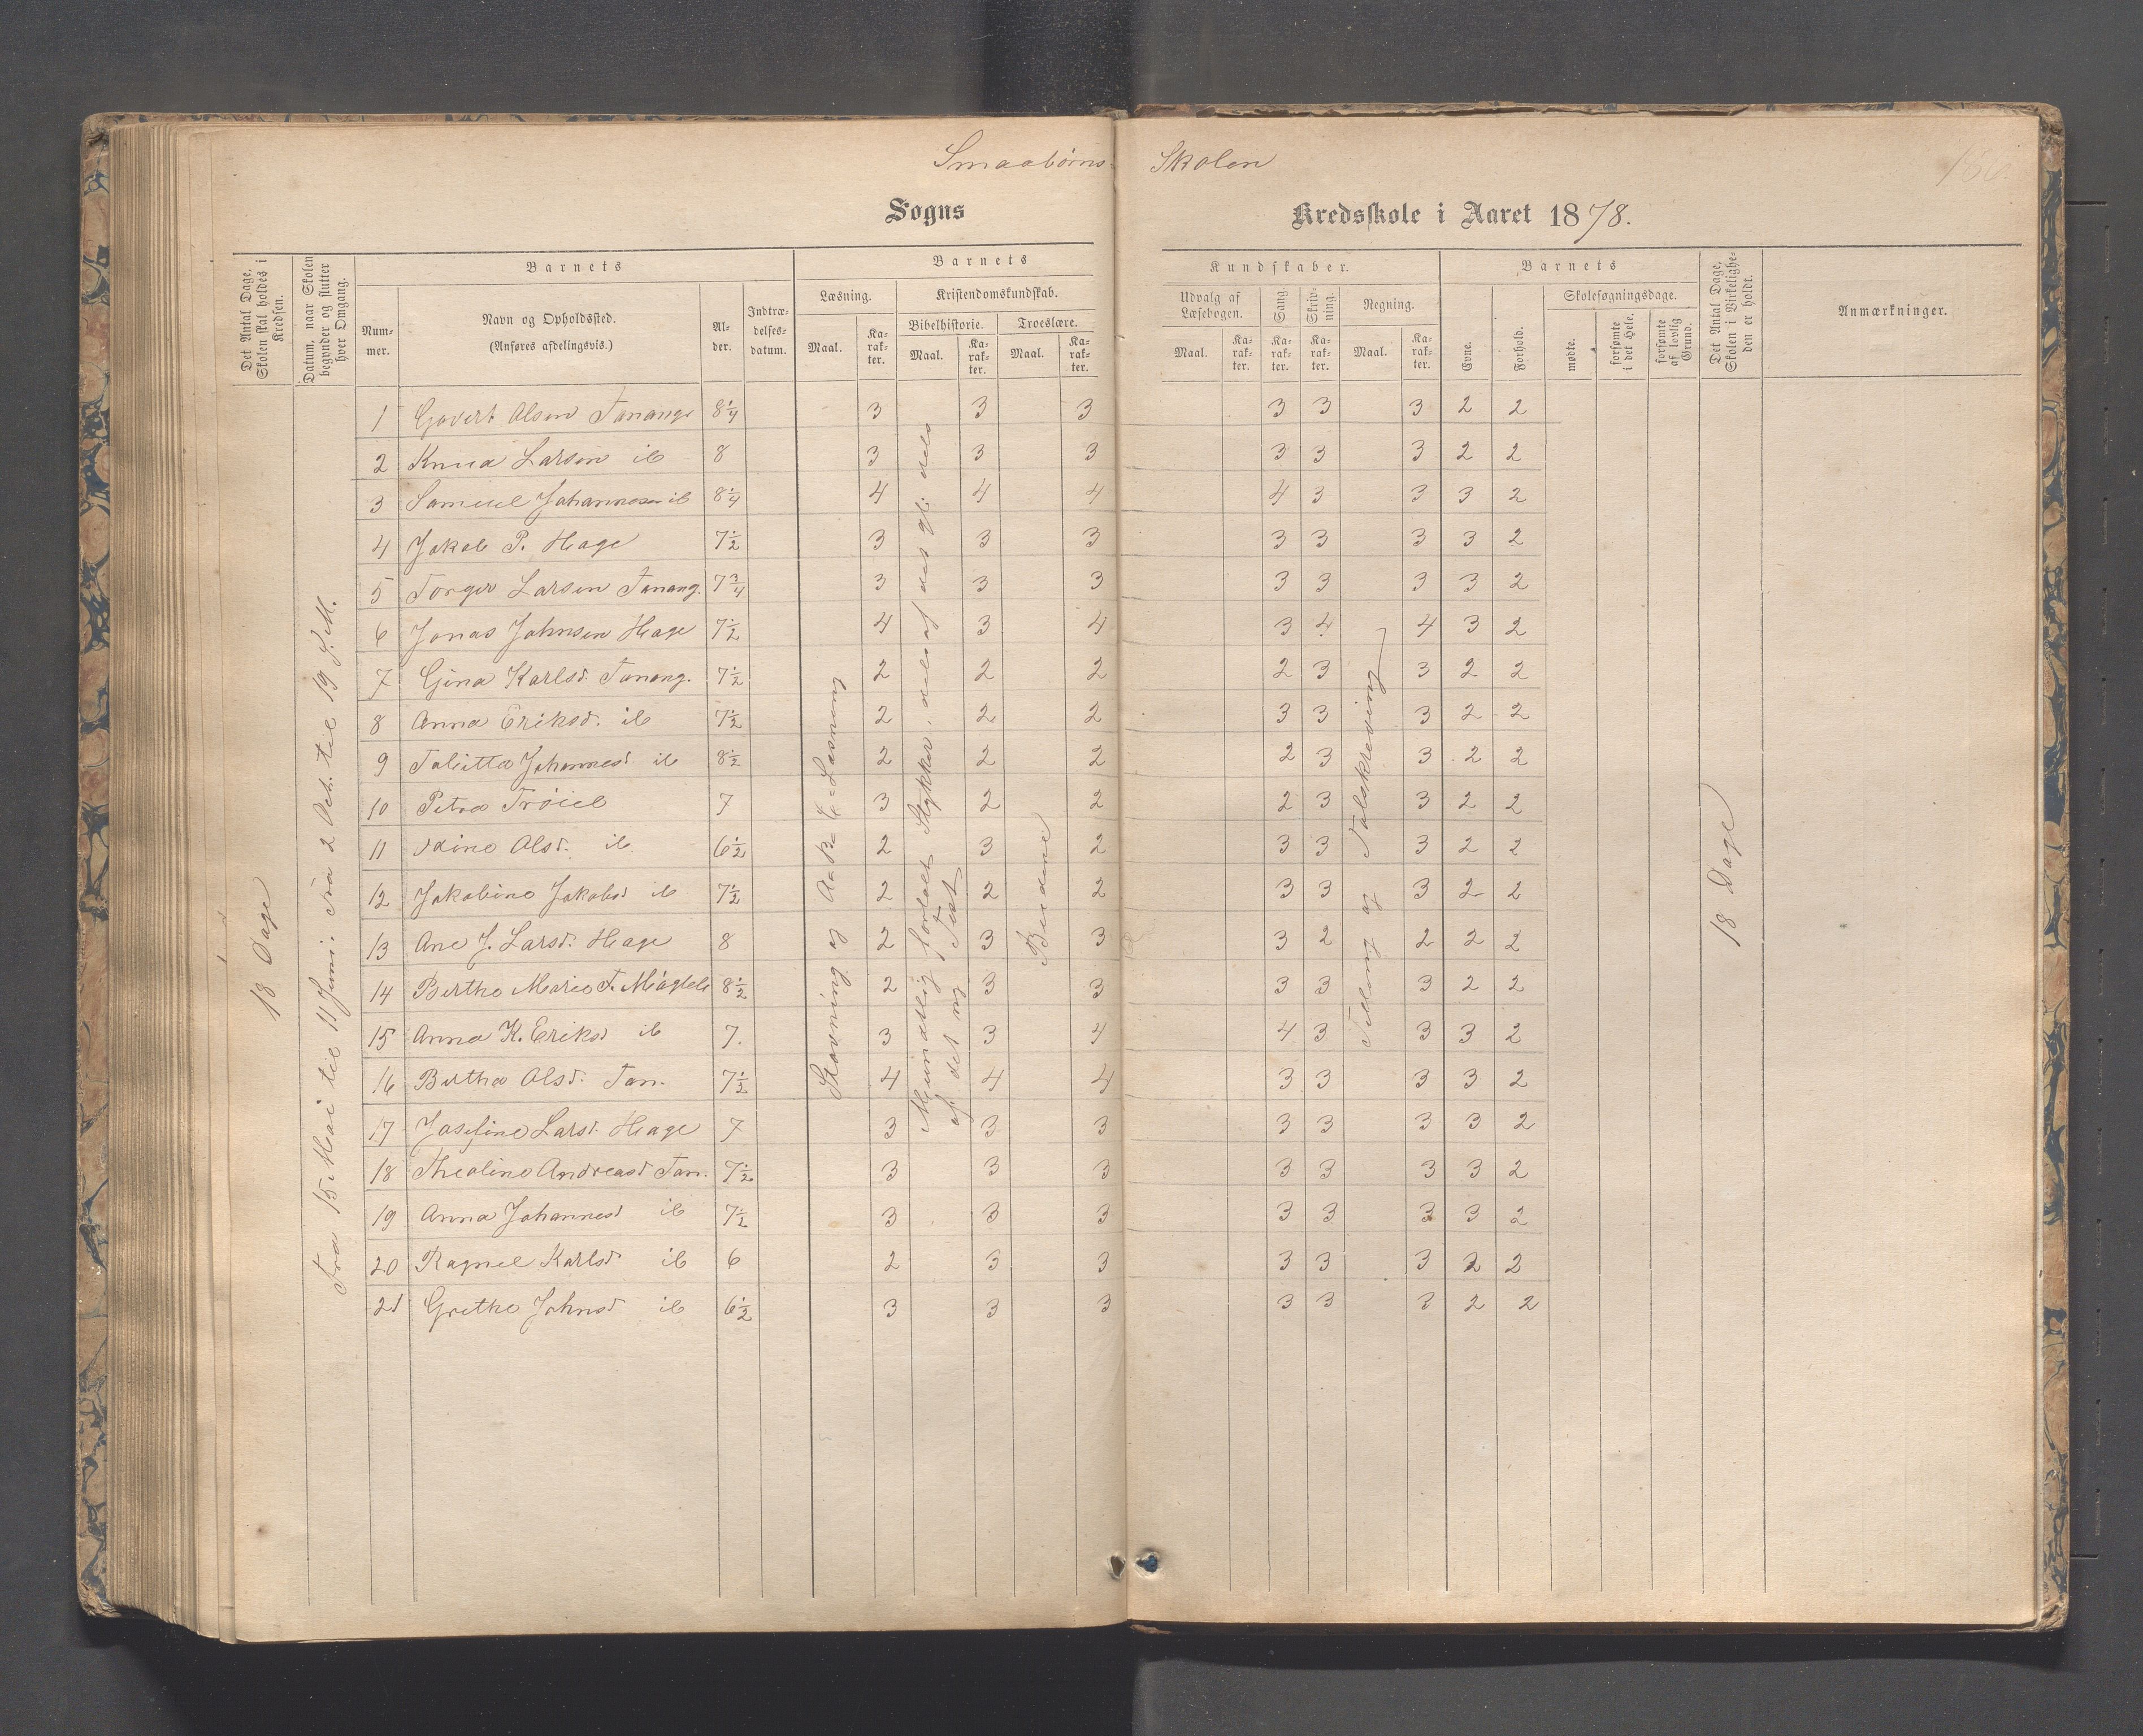 Smaabørns-Skolen
Sogns Kredsskole i Aaret 1878.
Det Antal Dage, Skolen skal holdes i Kredsen.
Datum, naar Skolen begynder og slutter hver Omgang.
Barnets
Num-mer.
Navn og Opholdssted.
(Anføres afdelingsvis.)
Al-der.
Indtræ-delses-datum.
Barnets
Læsning.
Maal.
Ka-rak-ter.
Kristendomskundskab.
Bibelhistorie.
Maal.
Ka-rak-ter.
Troeslære.
Maal.
Ka-rak-ter.
Kundskaber.
Udvalg af Læsebogen.
Maal.
Ka-rak-ter.
Sang
Ka-rak-ter.
Skriv-ning.
Ka-rak-ter.
Regning.
Maal.
Ka-rak-ter.
Barnets
Evne.
Forhold.
Skolesøgningsdage.
mødte.
forsømte i det Hele.
forsømte af lovlig Grund.
Det Antal Dage, Skolen i Virkelighe-den er holdt.
Anmærkninger.
18 Dage
Fra 15 Mai til 11 Juni. Fra 2 Oct. til 19 s. M.
Stavning og A-B-C-Læsning
Mundtlig fortalt Stykker, dels af det gl. dels
af det ny Test.
Bedene
Tælling og Talskrivning
18 Dage
1 Govert Olsen Tanange 8 1/4 3 3 3 3 3 3 2 2
2 Knud Larsen ib 8 3 3 3 3 3 3 2 2
3 Samuel Johannesen ib 8 1/4 4 4 4 4 3 3 3 2
4 Jakob P. Hage 7 1/2 3 3 3 3 3 3 3 2
5 Torger Larsen Tanang. 7 3/4 3 3 3 3 3 3 3 2
6 Jonas Johnsen Hage 7 1/2 4 3 4 3 4 4 3 2
7 Gina Karlsd. Tanang. 7 1/2 2 2 2 2 3 3 2 2
8 Anna Eriksd. ib 7 1/2 2 2 2 3 3 3 2 2
9 Talitta Johannesd ib 8 1/2 2 2 2 2 3 3 2 2
10 Petra 7 3 2 2 2 3 3 2 2
11 Olsd. ib. 6 1/2 2 3 2 3 3 3 2 2
12 Jakobine Jakobsd ib 7 1/2 2 2 2 3 3 3 2 2
13 Ane J. Larsd. Hage 8 2 3 3 3 2 2 2 2
14 Berthe Marie T. 8 1/2 2 3 3 3 3 3 2 2
15 Anna K. Eriksd ib 7. 3 3 4 4 3 3 3 2
16 Bertha Olsd. Tan. 7 1/2 4 4 4 3 3 3 3 2
17 Josefine Larsd. Hage 7 3 3 3 3 3 3 3 2
18 Theoline Andreasd Tan. 7 1/2 3 3 3 3 3 3 3 2
19 Anna Johannesd ib 7 1/2 3 3 3 3 3 3 3 2
20 Ragnel Karlsd ib 6 2 3 3 3 3 3 2 2
21 Grethe Johnsd ib 6 1/2 3 3 3 3 3 3 2 2